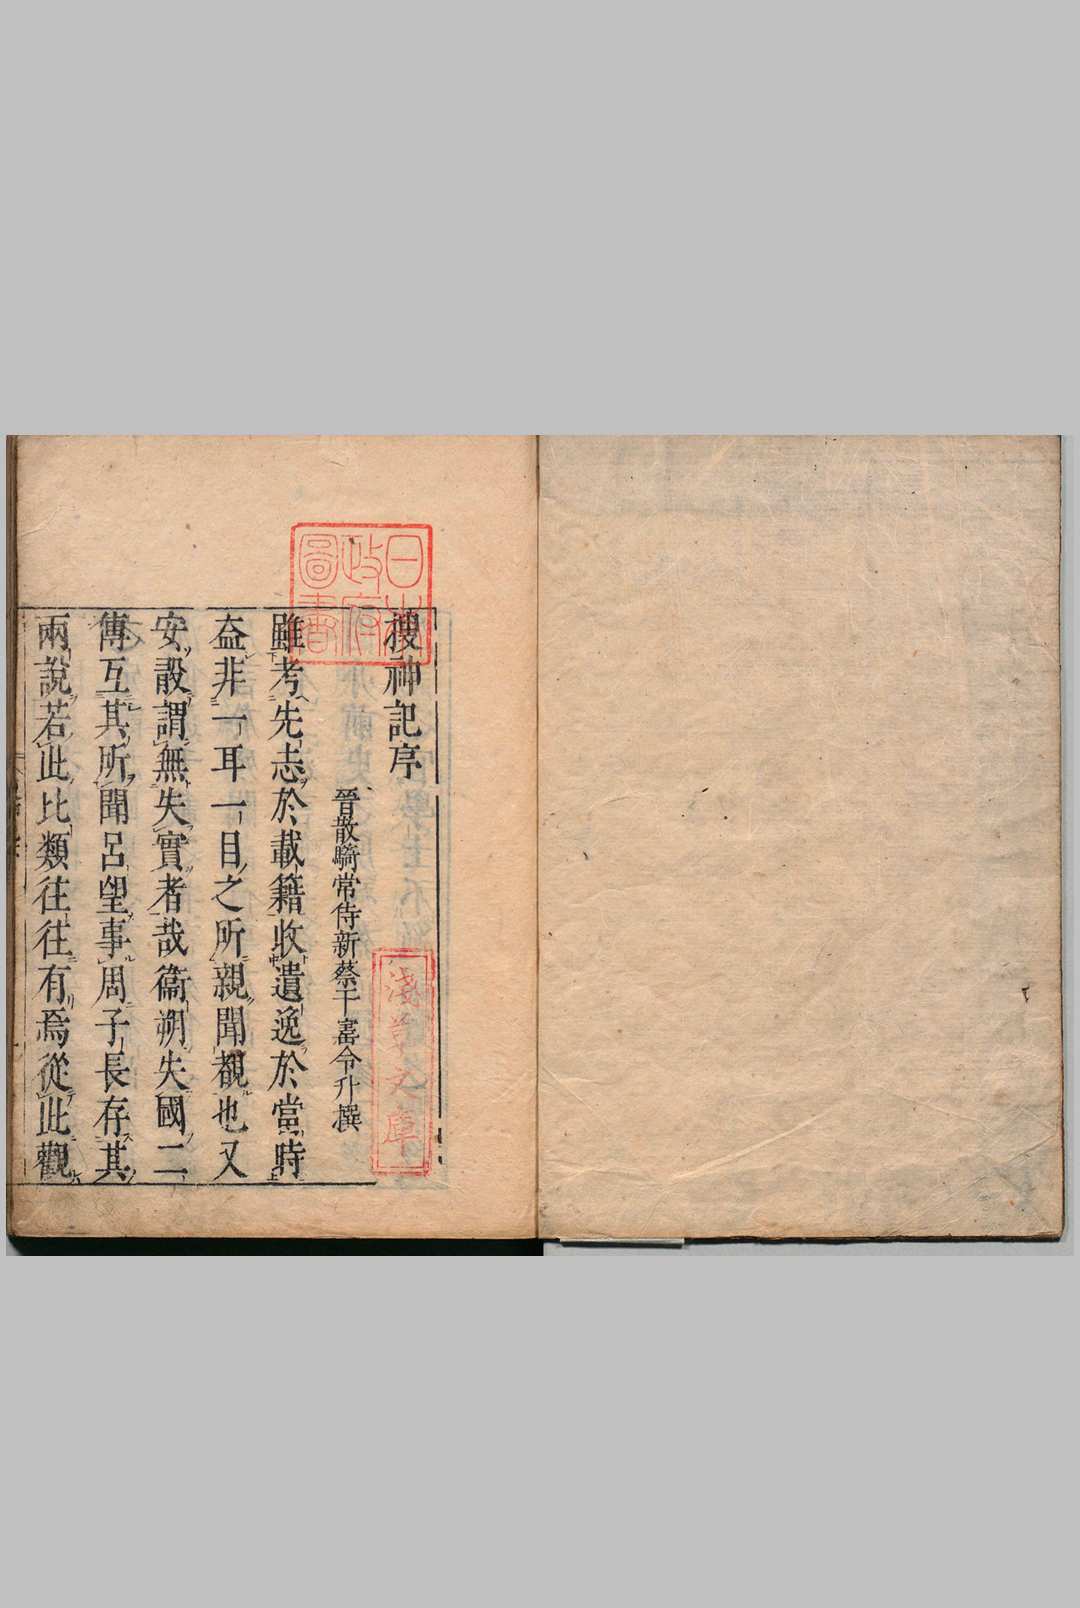 搜神記序
晉散騎常侍新蔡干寶令升撰
雖考先志於載籍收遺逸於當時
葢非一耳一目之所親聞覩也又
安敢謂無失實者哉衞朔失國二
傳互其所聞呂望事周子長存其
兩說若此比類往往有焉從此觀
日本
政府
圖書
淺草文庫